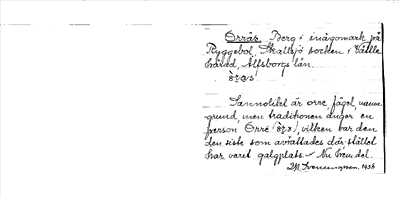 Orrås. Berg i inägomark på
Ryggebol, Skallsjö socken i Vättle
härad, Älfsborgs län.
Sannolikt är orre, fågel, namn-
grund, men traditionen anger en
person Orre, vilken var den
den siste som avrättades där stället
har varit galgplats. Nu
Svenungsson. 1938